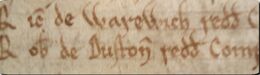 R ić de Warewich redd C
R ob̄ de Duston̄ redd Comp